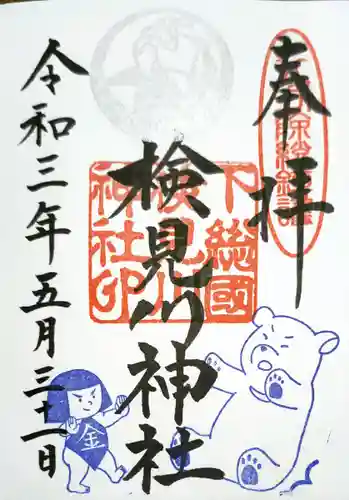 奉拝
検見川神社
下総國
検見川
神社印
令和三年五月三十一日
金